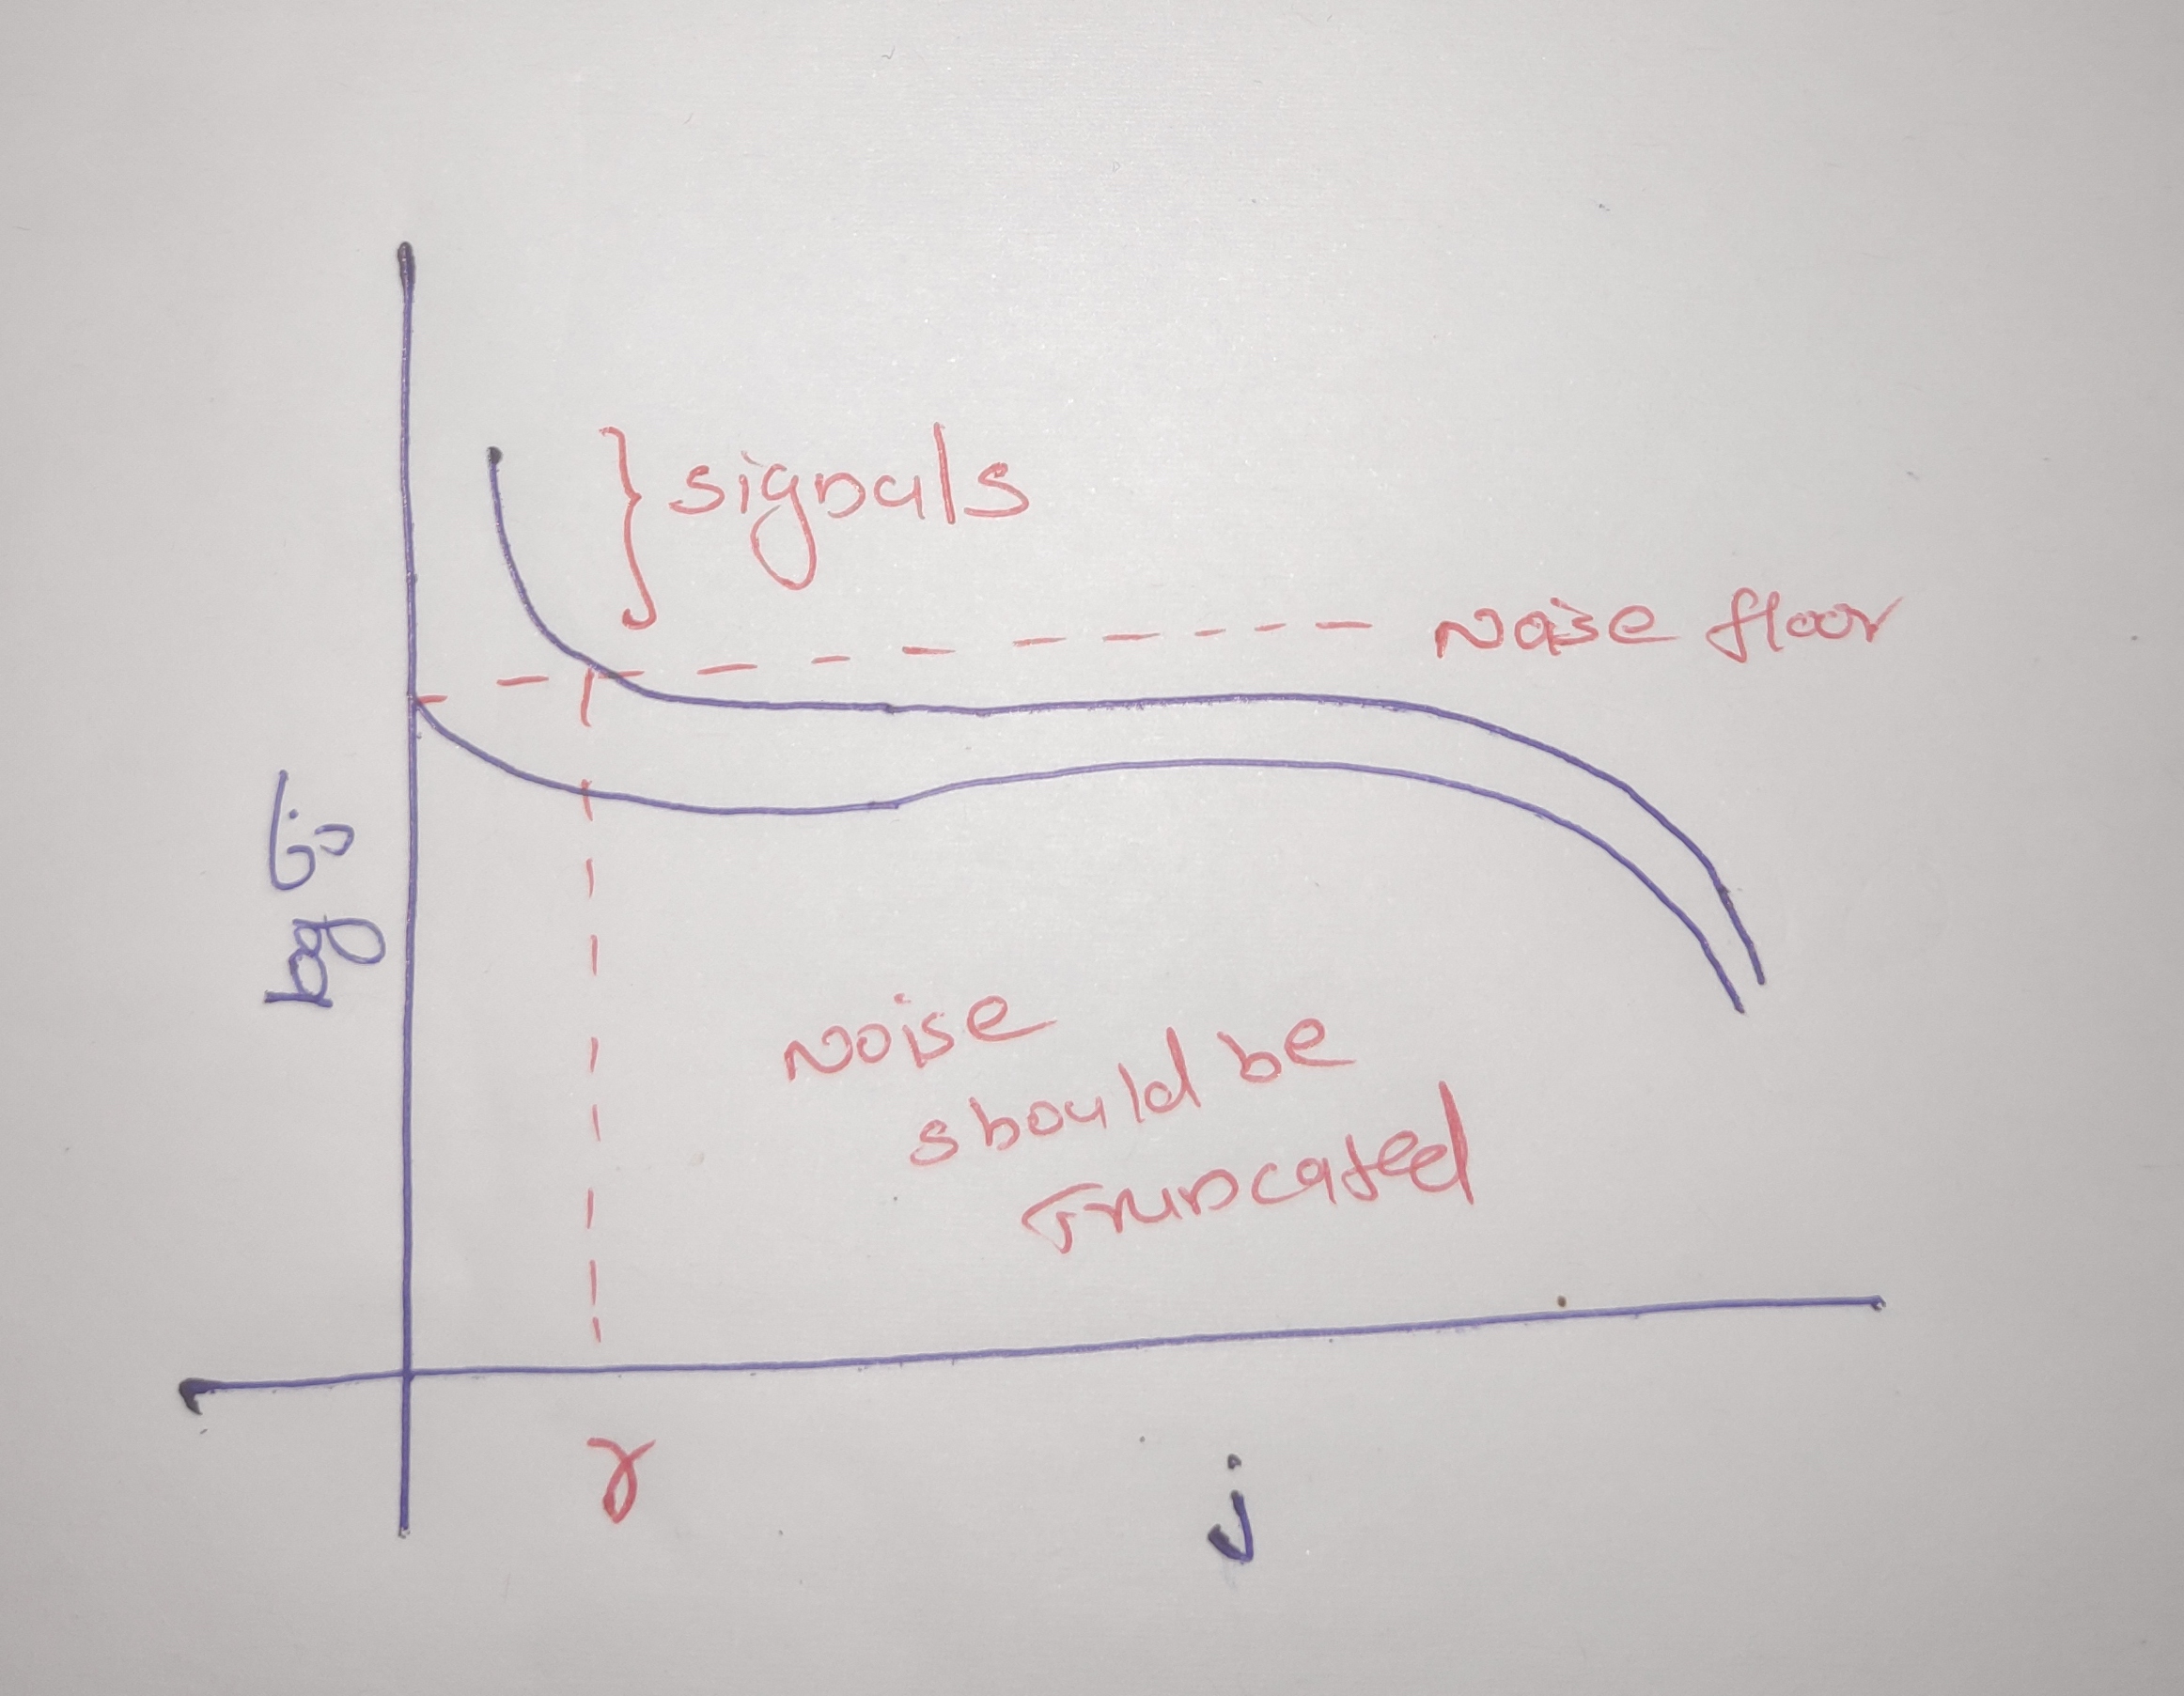 signals
Noise floor
log σj
Noise
should be
Truncated
r
j